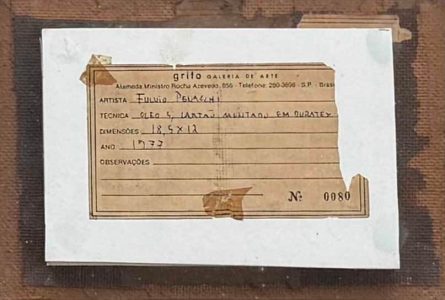 grifo GALERIA DE ARTE
Alameda Ministro Rocha Azevedo, 856 - Telefone: 280-3696 - S.P. - Brasi
ARTISTA FULVIO PENACCHI
TÉCNICA OLEO S/ CARTÃO MONTADO EM DURATEX
DIMENSÕES 18,5 X 12
ANO 1977
OBSERVAÇÕES
Nº 0080